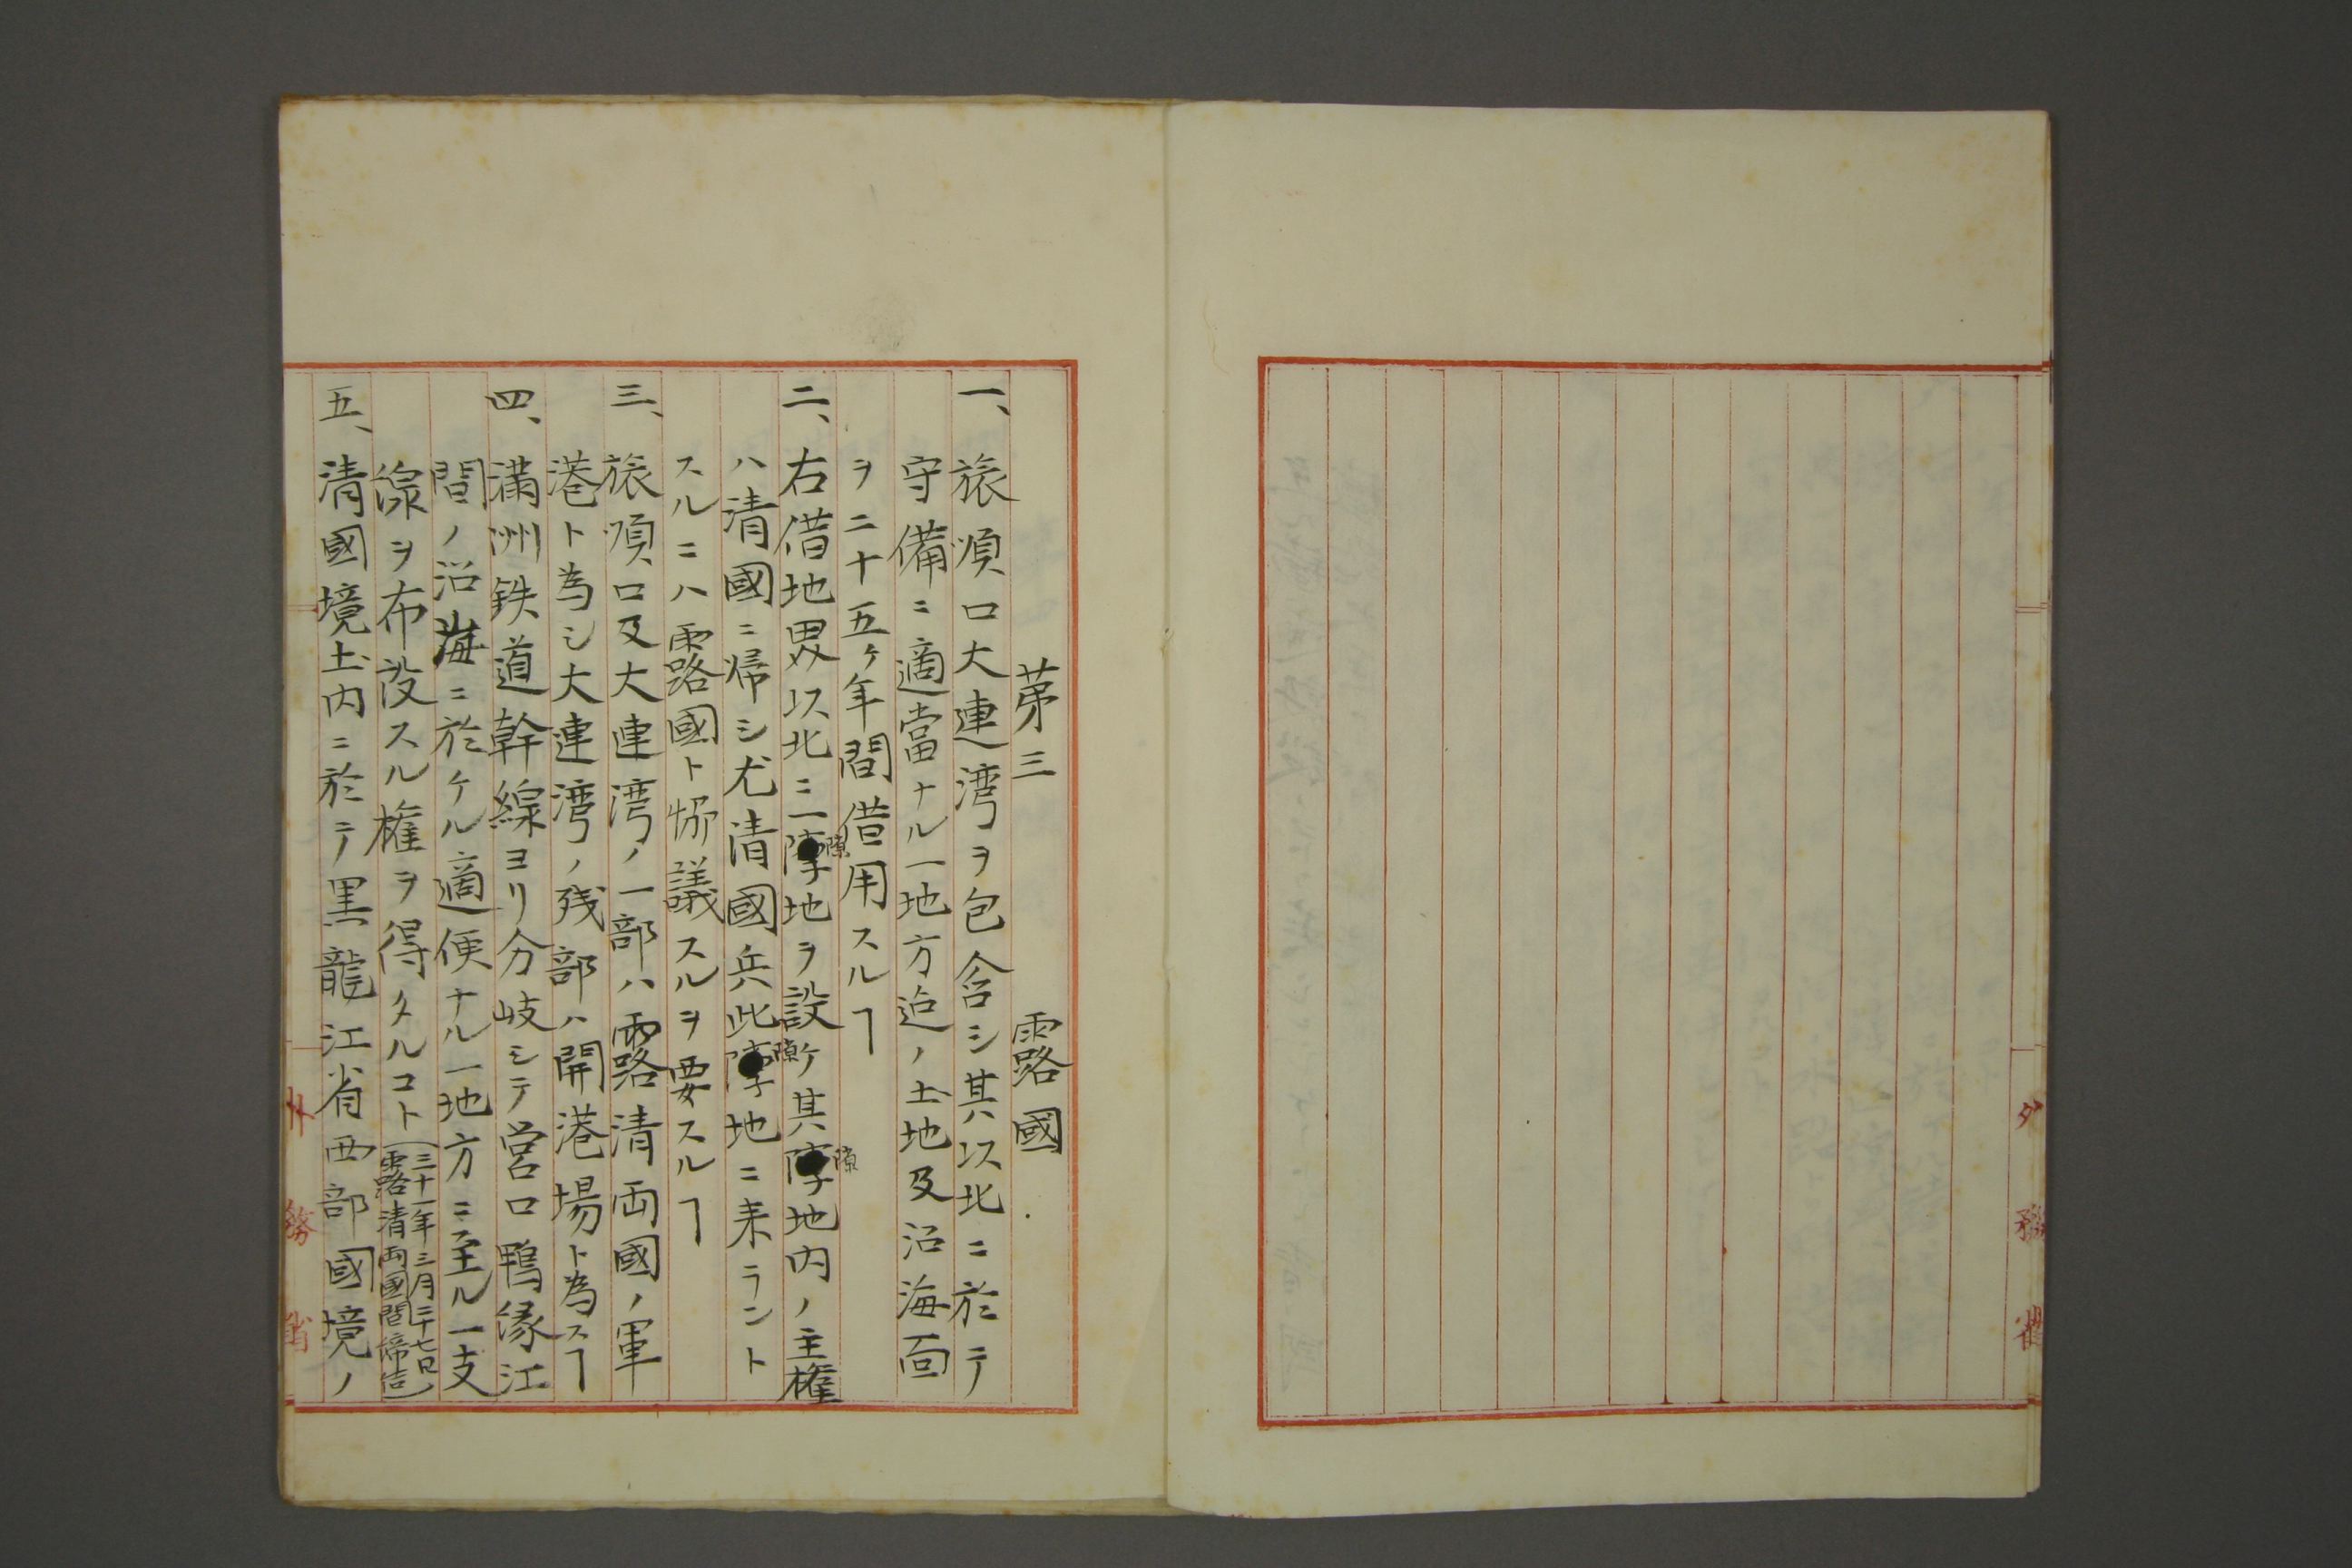 外務省
第三　露國
一、旅順口大連湾ヲ包含シ其以北ニ於テ
守備ニ適當ナル一地方迠ノ土地及沿海面
ヲ二十五ヶ年間借用スルヿ
二、右借地界以北ニ一隙地ヲ設ケ其隙地内ノ主権
ハ清國ニ帰シ尤清國兵此隙地ニ来ラント
スルニハ露國ト恊議スルヲ要スルヿ
三、旅順口及大連湾ノ一部ハ露清両國ノ軍
港ト為シ大連湾ノ残部ハ開港場ト為スヿ
四、満洲鉄道幹線ヨリ分岐シテ営口鴨緑江
間ノ沿海ニ於ケル適便ナル一地方ニ至ル一支
線ヲ布設スル権ヲ得タルコト（三十一年三月二十七日
露清両國間締結）
五、清國境土内ニ於テ黒龍江省西部國境ノ
外務省